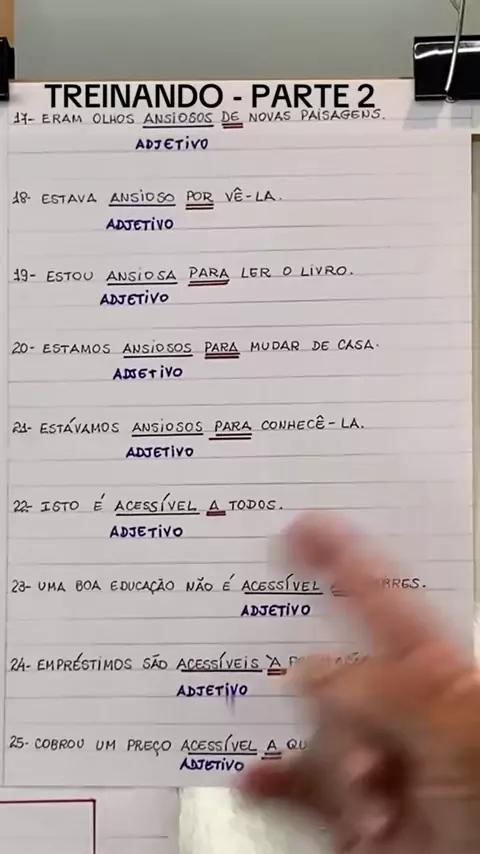 TREINANDO - PARTE 2
17- ERAM OLHOS ANSIOSOS DE NOVAS PAISAGENS.
ADJETIVO
18- ESTAVA ANSIOSO POR VÊ-LA.
ADJETIVO
19- ESTOU ANSIOSA PARA LER O LIVRO.
ADJETIVO
20- ESTAMOS ANSIOSOS PARA MUDAR DE CASA.
ADJETIVO
21- ESTÁVAMOS ANSIOSOS PARA CONHECÊ-LA.
ADJETIVO
22- ISTO É ACESSÍVEL A TODOS.
ADJETIVO
23- UMA BOA EDUCAÇÃO NÃO É ACESSÍVEL
ADJETIVO
24- EMPRÉSTIMOS SÃO ACESSÍVEIS À
ADJETIVO
25- COBROU UM PREÇO ACESSÍVEL A
ADJETIVO